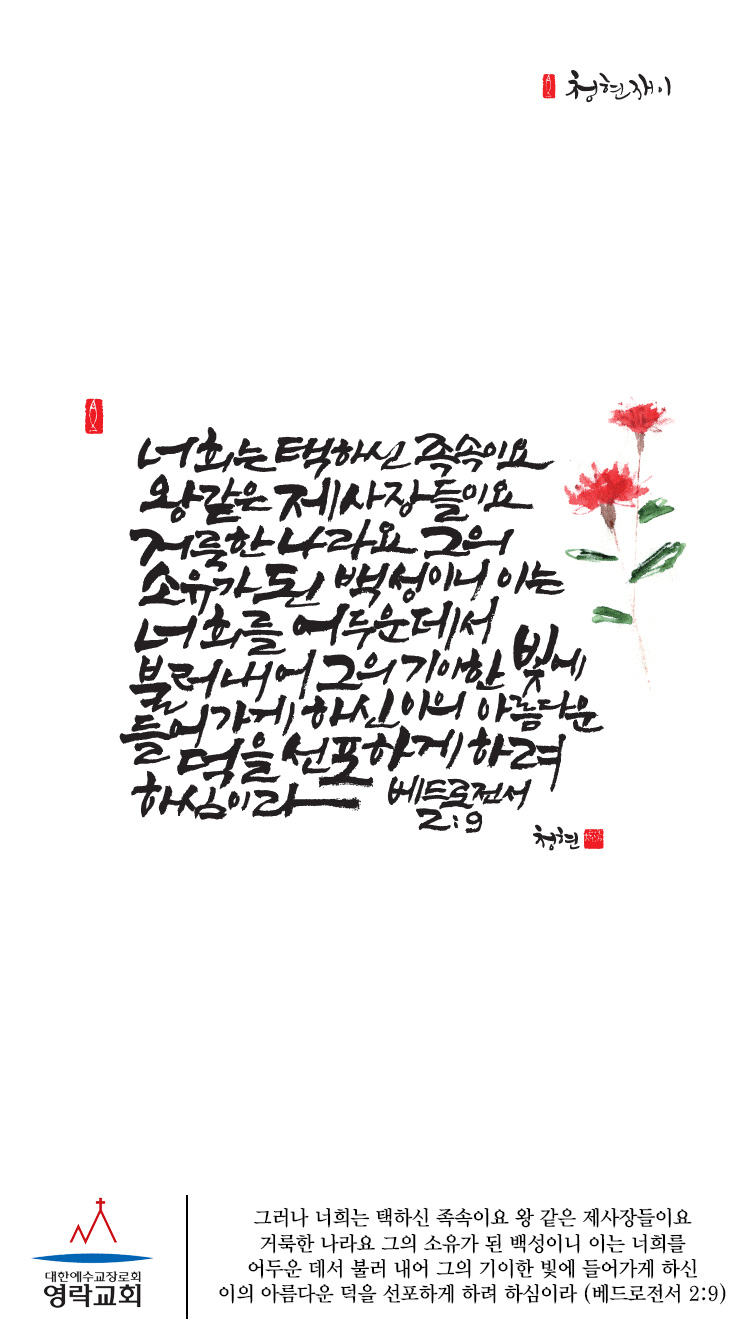 청현재이
너희는 택하신 족속이요
왕같은 제사장들이요
거룩한 나라요 그의
소유가 된 백성이니 이는
너희를 어두운데서
불러내어 그의 기이한 빛에
들어가게 하신 이의 아름다운
덕을 선포하게 하려
하심이라
베드로전서
2:9
청현
대한예수교장로회
영락교회
그러나 너희는 택하신 족속이요 왕 같은 제사장들이요
거룩한 나라요 그의 소유가 된 백성이니 이는 너희를
어두운 데서 불러 내어 그의 기이한 빛에 들어가게 하신
이의 아름다운 덕을 선포하게 하려 하심이라 (베드로전서 2:9)